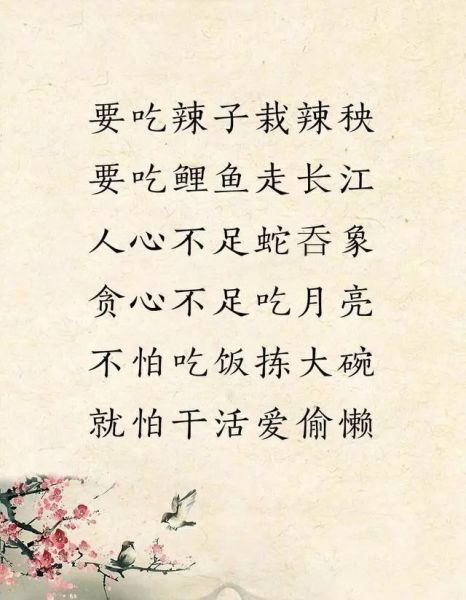 要吃辣子栽辣秧
要吃鲤鱼走长江
人心不足蛇吞象
贪心不足吃月亮
不怕吃饭拣大碗
就怕干活爱偷懒